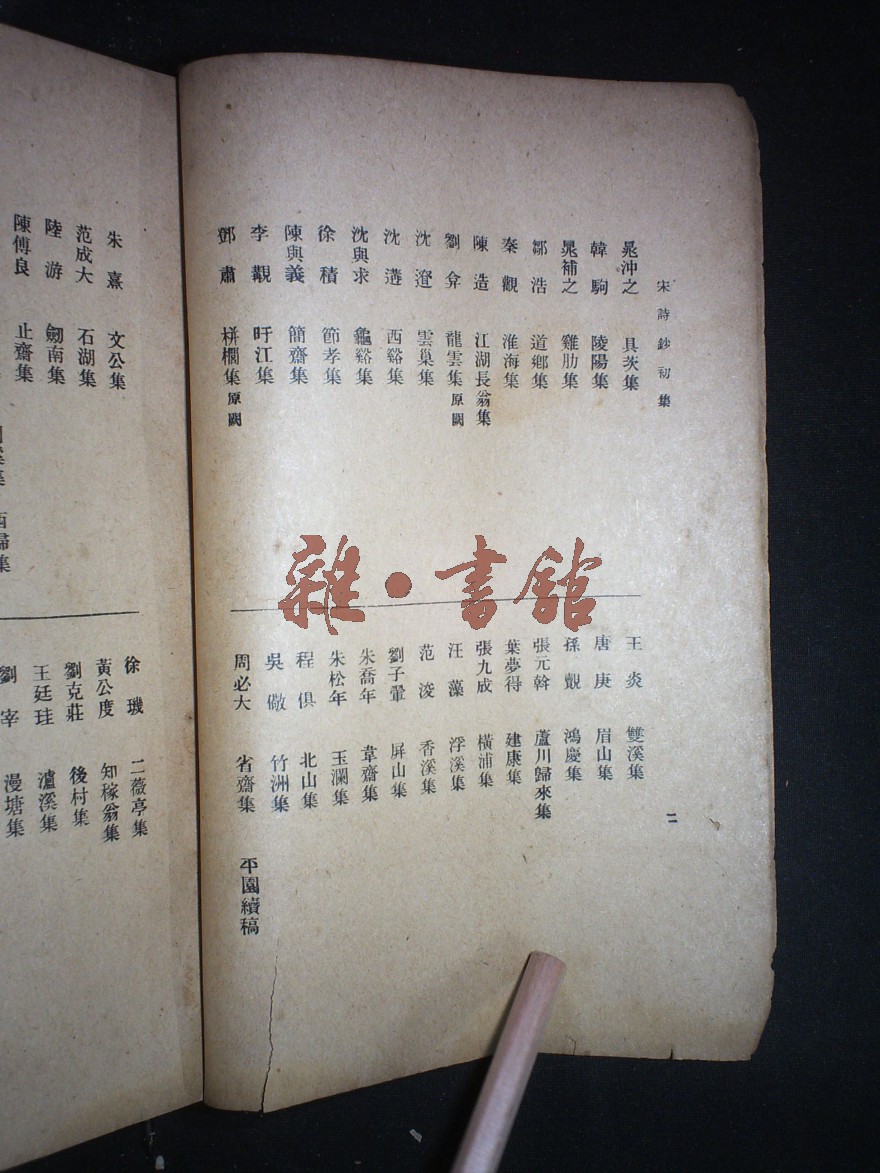 宋詩鈔初集
晁沖之 具茨集
韓駒 陵陽集
晁補之 雞肋集
鄒浩 道鄉集
秦觀 淮海集
陳造 江湖長翁集
劉弇 龍雲集原闕
沈遼 雲巢集
沈遘 西谿集
沈與求 龜谿集
徐積 節孝集
陳與義 簡齋集
李覯 旴江集
鄧肅 栟櫚集原闕
王炎 雙溪集
唐庚 眉山集
孫覿 鴻慶集
張元幹 蘆川歸來集
葉夢得 建康集
張九成 橫浦集
汪藻 浮溪集
范浚 香溪集
劉子翬 屏山集
朱喬年 韋齋集
朱松年 玉瀾集
程俱 北山集
吳儆 竹洲集
周必大 省齋集 平園續稿
二
朱熹 文公集
范成大 石湖集
陸游 劒南集
陳傅良 止齋集
西歸集
徐璣 二薇亭集
黃公度 知稼翁集
劉克莊 後村集
王廷珪 瀘溪集
劉宰 漫塘集
雜·書館